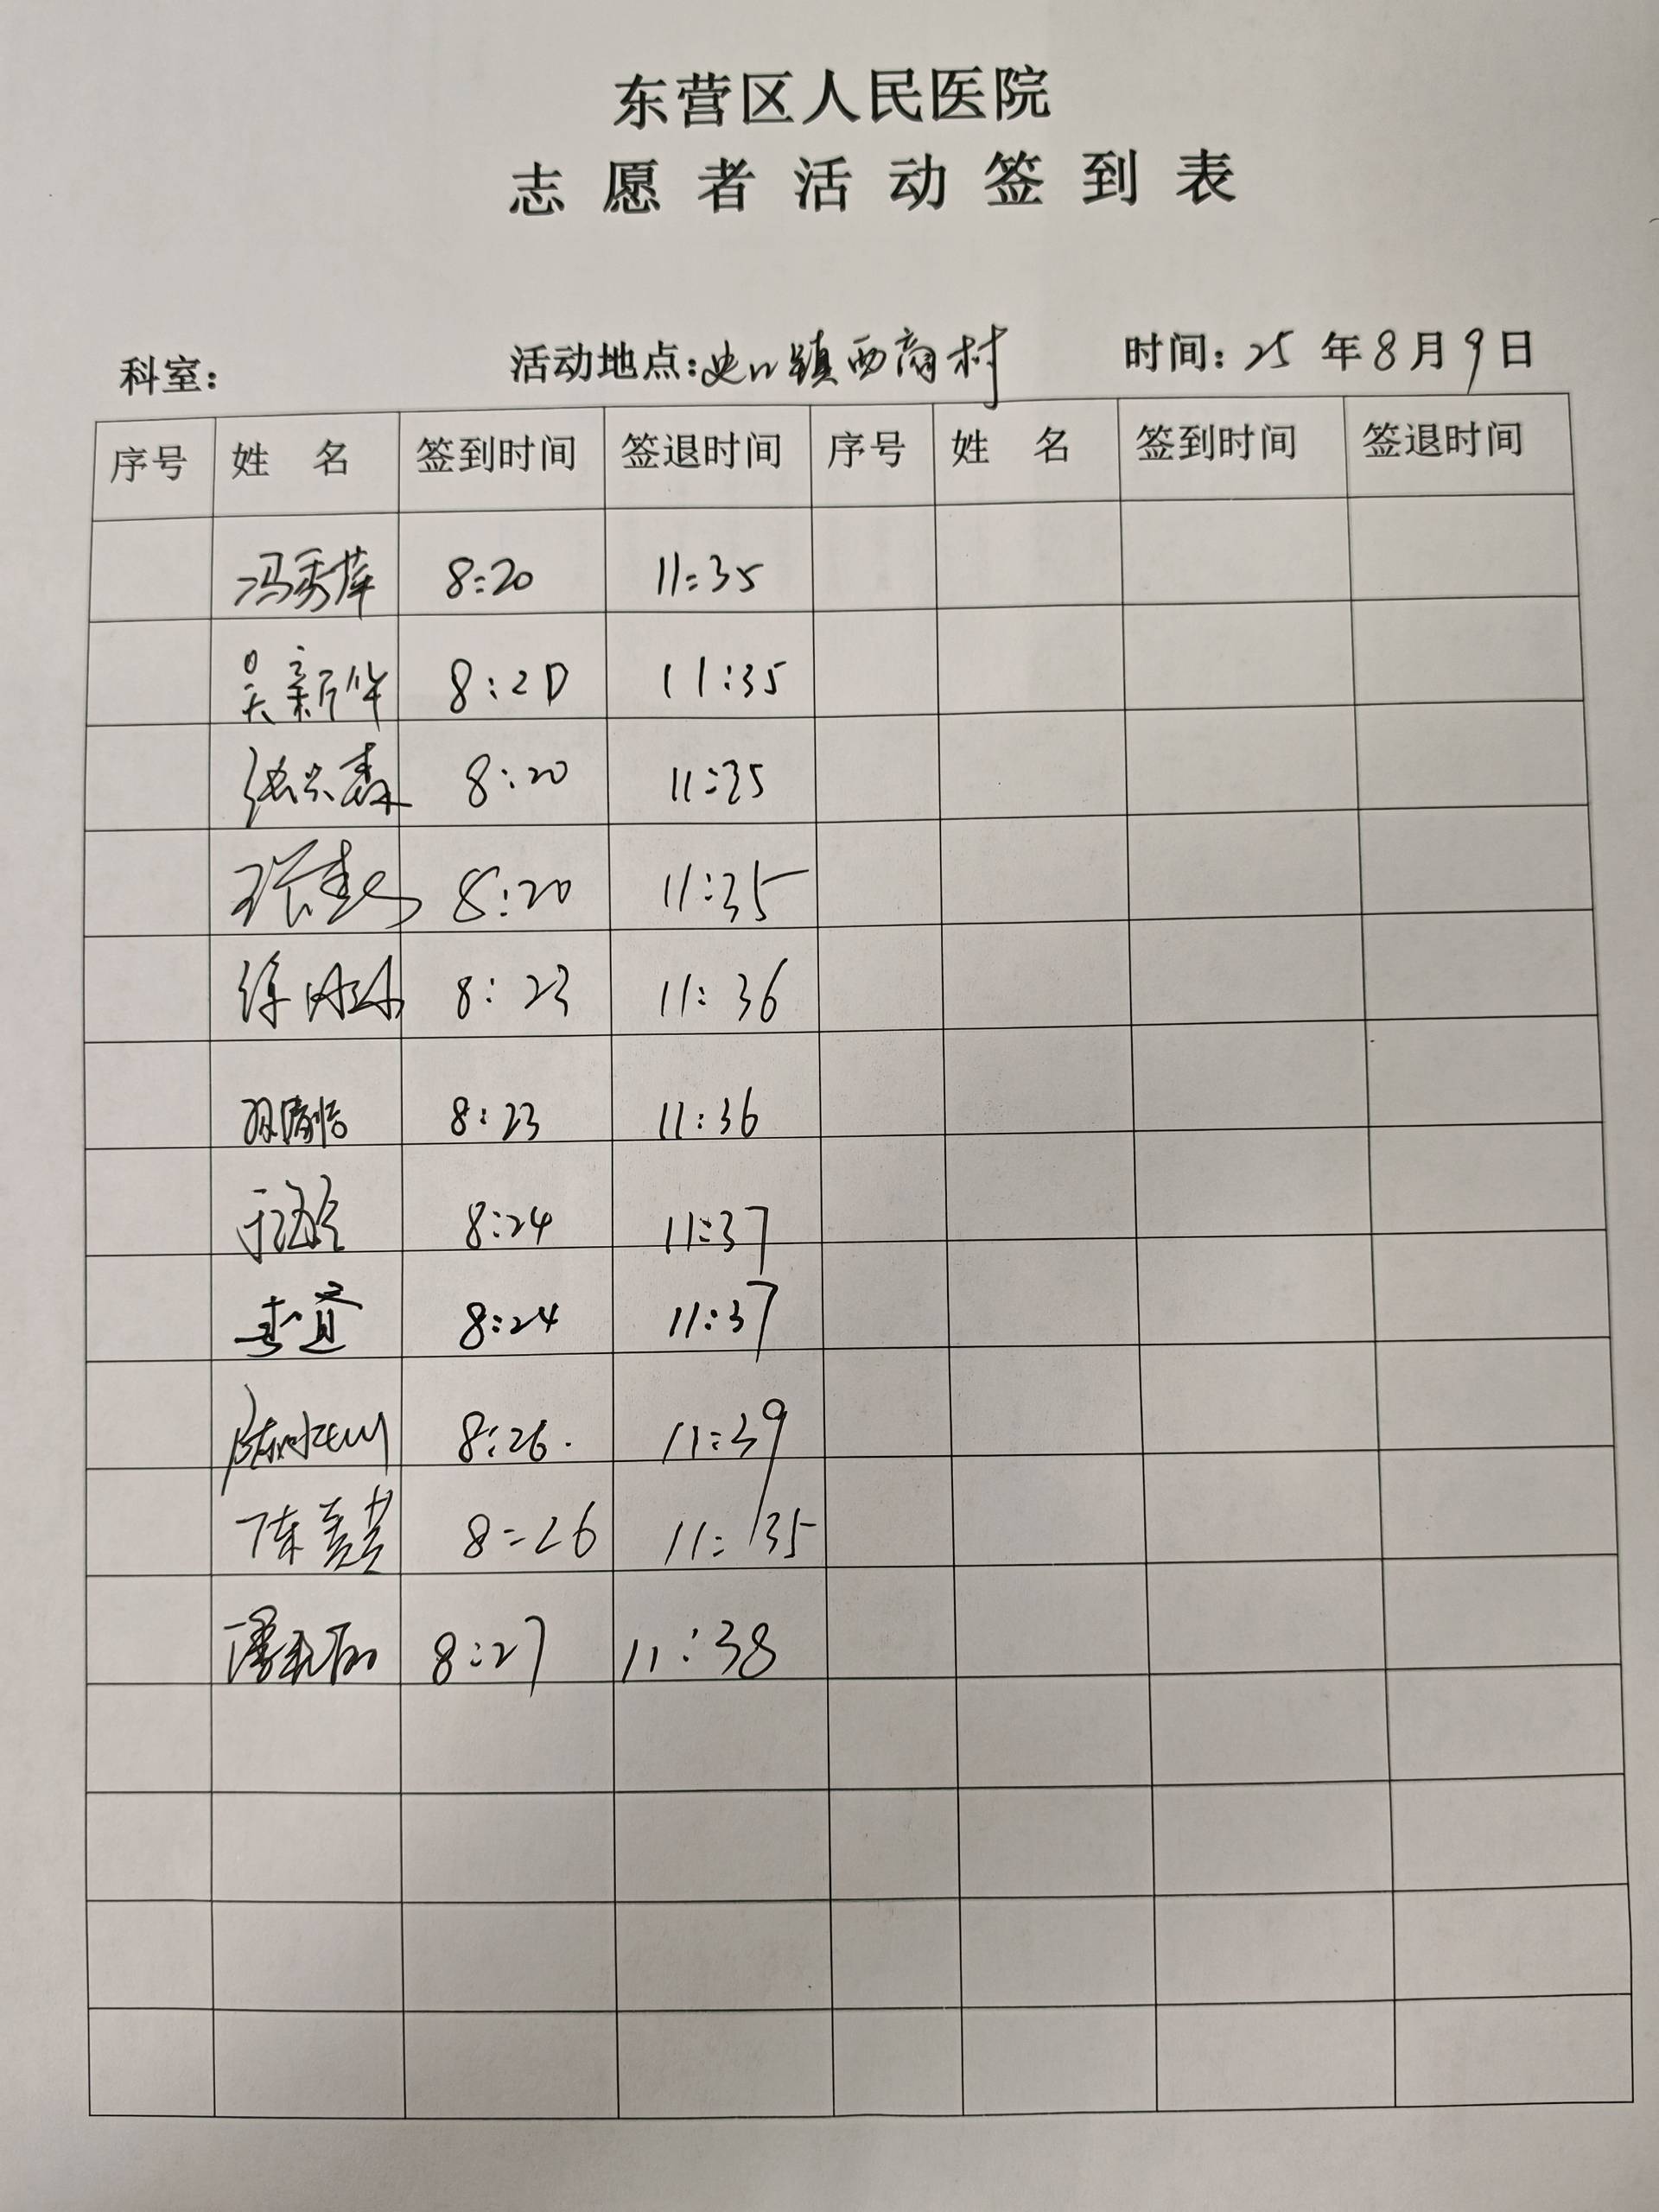 东营区人民医院
志愿者活动签到表
科室： 活动地点：史口镇西商村 时间：25年8月9日
序号 姓 名 签到时间 签退时间 序号 姓 名 签到时间 签退时间
冯秀萍 8:20 11:35
吴新华 8:20 11:35
张 8:20 11:35
张 8:20 11:35
徐 8:23 11:36
8:23 11:36
于 8:24 11:37
8:24 11:37
陈 8:26 11:39
陈 8:26 11:35
潘 8:27 11:38